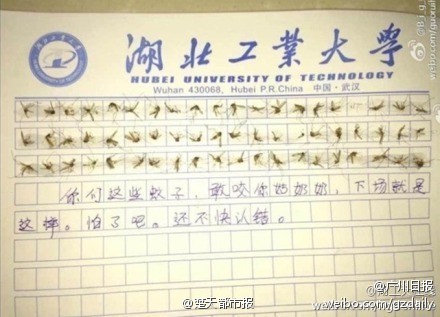 湖北工業大學
HUBEI UNIVERSITY OF TECHNOLOGY
Wuhan 430068, Hubei P.R.China 中国·武汉
你们这些蚊子，敢咬你姑奶奶，下场就是
这样。怕了吧。还不快认错。
@楚天都市报
@广州日报
weibo.com/gzdaily